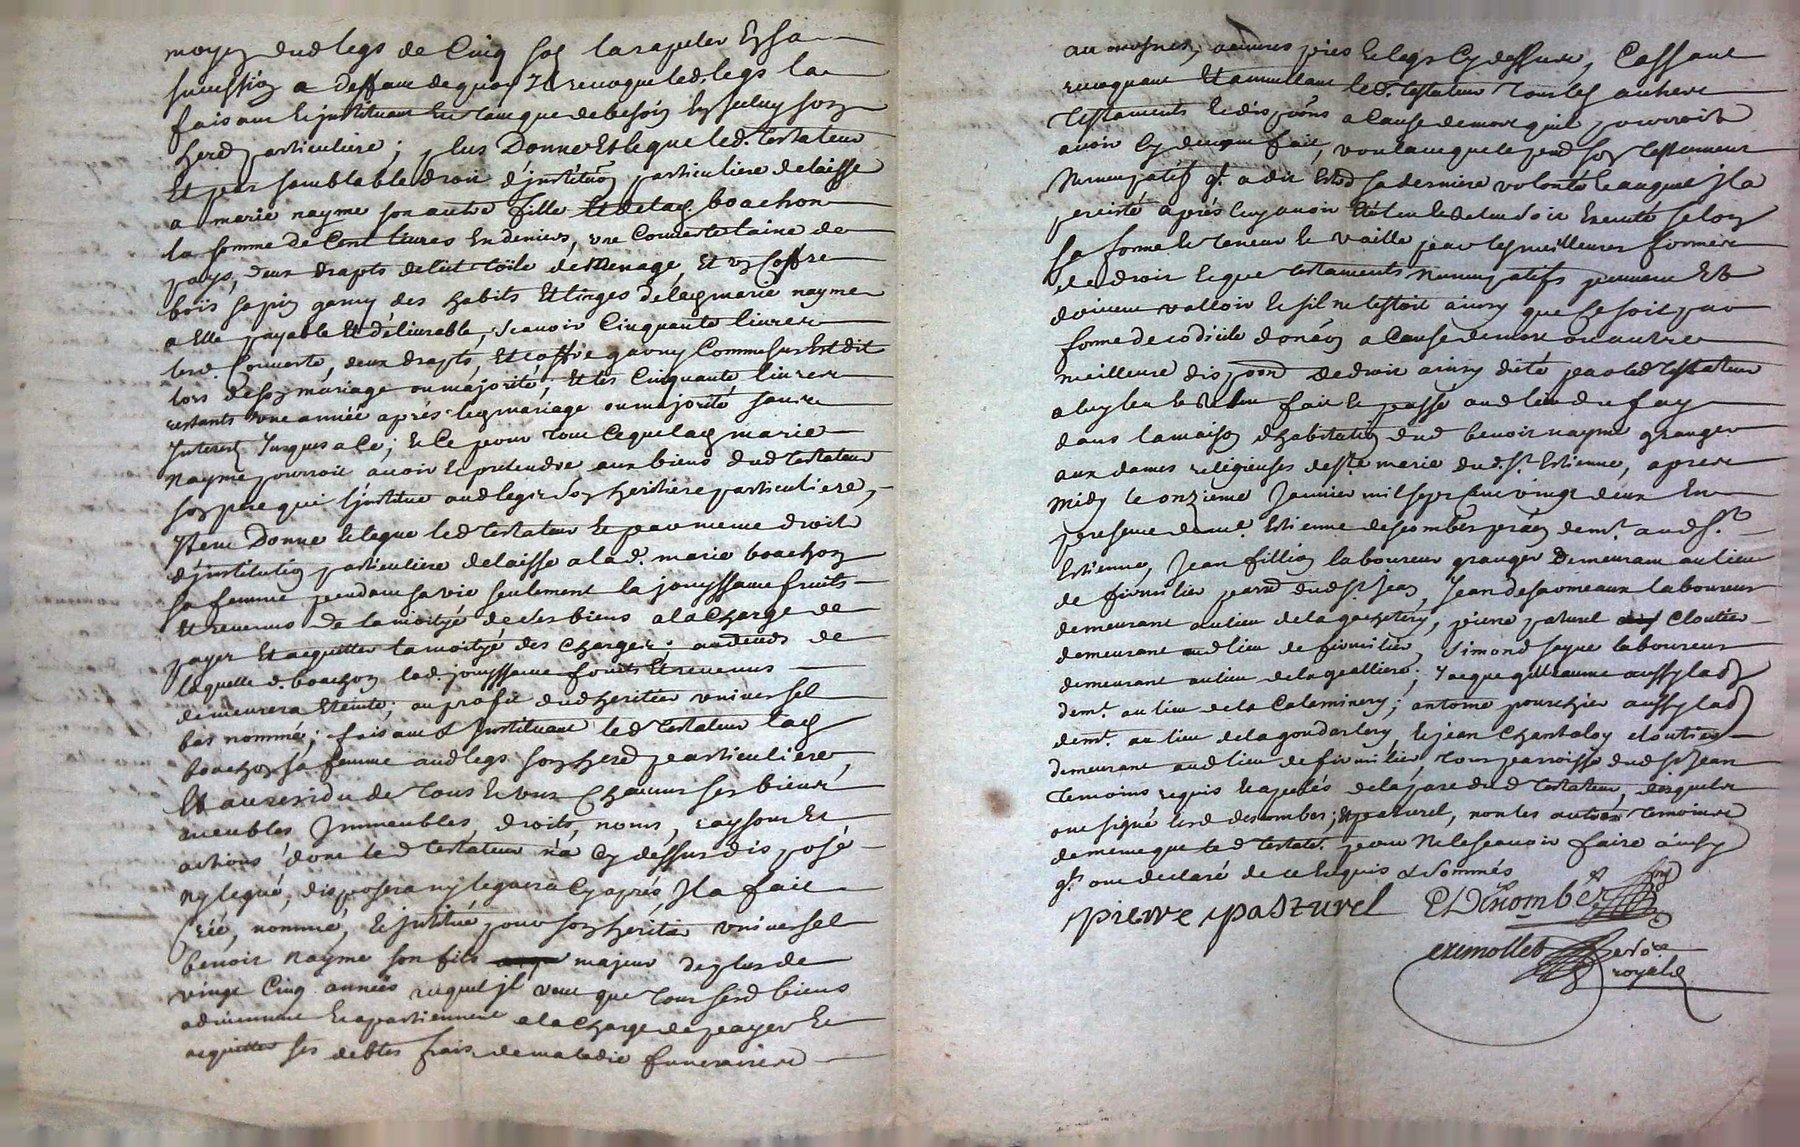 moyen dud legs de Cinq sols la rapuler En sa
succession a deffaut de quoy Il revoque led. legs la
faisant et instituant En tant que de besoin En iceluy son
hered particuliere ; plus Donne Et legue led. testateur
Et par semblable droit d'institu͠on particuliere delaisse
a marie nayme son autre fille Et de lad. boachon
la somme de Cent livres En deniers, une Couverte laine de
pays, deux drapts de lict toile de Menage, Et un Coffre
bois sapin garny des habits Et linges de lad marie nayme
a Elle payable Et délivrable, scavoir Cinquante livres
lesd. Couverte, deux drapts, Et coffre garny Comme sus Est dit
lors de son mariage ou majorité ; Et les Cinquante livres
restants une année aprés led mariage ou majorité sans
Interest Jusques a ce ; Et Ce pour tout Ce que lad marie
Nayme pourroit avoir Et pretendre aux biens dud testateur
son pere qui l'institue aud legs son heritiere particuliere,
Item Donne Et legue led testateur Et par meme droit
d'institution particuliere delaisse a lad. marie boachon
sa femme pendant sa vie seulement la jouyssance fruits
Et revenus de la moityé de ses biens a la Charge de
payer Et acquitter la moityé des Charges ; au deces de
laquelle d. boachon lad. jouyssance fruits Et revenus
demeurera Eteinte ; au profit dud heritier universel
bas nommé ; faisant & Instituant led testateur lad
boachon sa femme aud legs son hered particuliere,
Et au residu de tous Et uns Chacuns ses biens
meubles Immeubles, droits, noms, raysons Et
actions dont led testateur n'a Cy dessus disposé
Ny legué, disposera ny leguera Cy aprés Il a fait
Créé, nommé, Et institué pour son heritier universel
benoit Nayme son fils majeur de plus de
vingt Cinq années auquel il veut que tous sesd biens
adviennent Et apartiennent a la Charge de payer Et
acquitter ses debtes frais de maladie funeraires
aumosnes, œuvres pies Et legs Cy dessus, Cassant
revoquant Et annullant led. testateur tous les autres
testaments Et dispo͠ons a Cause de mort qu'il pourroit
avoir Cy devant fait, voulant que le p͠nt son testament
Nuncupatif qt. a dit Est͠e sa derniere volonté En laquel Il a
percisté aprés luy avoir Eté leu Et releu soit Executé selon
sa forme Et teneur Et vaille par les meilleures formes
de droit Et que testaments Nuncupatifs peuvent Et
doivent valloir Et s'il ne l'estoit ainsy que ce soit par
forme de codicile dona͠on a Cause de mort ou autre
meilleure dispo͠on de droit ainsy dicté par led testateur
a luy leu Et Releu fait Et passé aud lieu du fay
dans la maison d'habitation dud benoit nayme granger
aux dames religieuses de ste. marie dud. St. Estienne, apres
midy le onzieme Janvier mil sept Cent vingt deux En
presence de me. Estienne descombes pra͠en demt. aud St.
Estienne, Jean fillion laboureur granger Demeurant au lieu
de firmilieu par͠se dud st jean, Jean desaomeaux laboureur
demeurant au lieu de la gacheterÿ, pierre paturel Cloutier
demeurant aud lieu de firmilieu, Simond faque laboureur
demeurant au lieu de la gealliere ; Jacque guilleaume aussy lab͠r
demt. au lieu de la Calaminery ; antoine pourchier aussy lab͠r
demt. au lieu de la gondarlery, Et jean Chantaloy cloutier
demeurant aud lieu de firmilieu, tous parroisse dud st Jean
temoins requis Et apellés de la part dud testateur, desquels
ont signé lesd descombes ; Et paturel, non les autres temoins
de meme que led testatr. pour Ne le scavoir faire ainsy
qls ont declaré de ce Enquis & sommés
pierre pasturel EtDescombes
exemollet nore.
royal